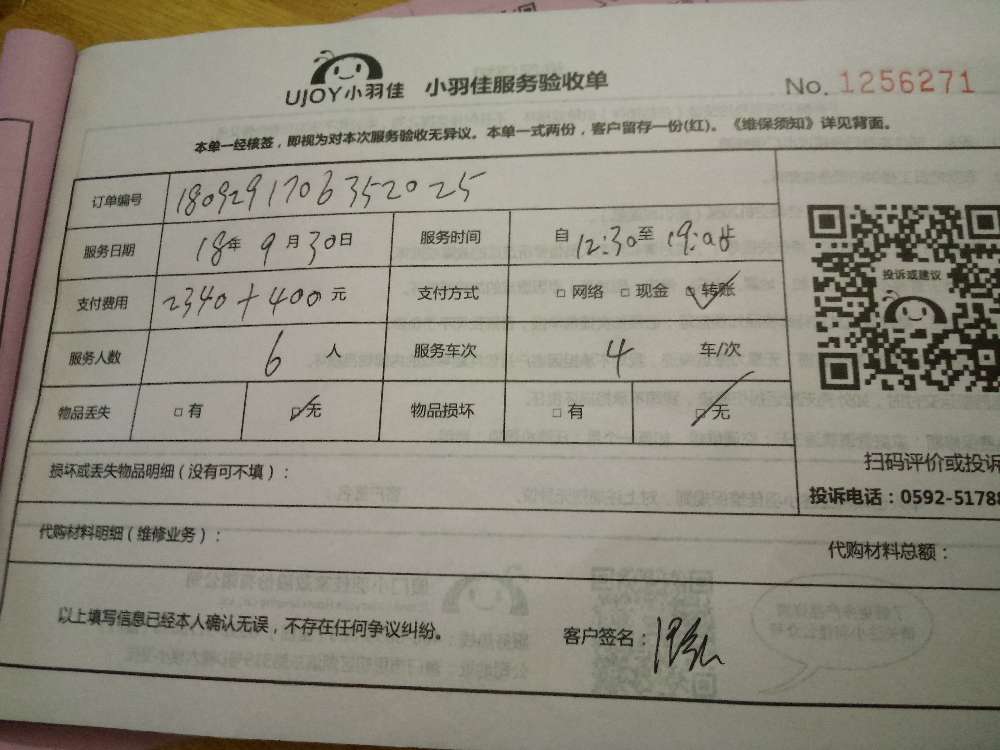 UJOY小羽佳 小羽佳服务验收单 No. 1256271
本单一经核签，即视为对本次服务验收无异议。本单一式两份，客户留存一份(红)。《维保须知》详见背面。
订单编号 1809291706352025
服务日期 18年 9月30日 服务时间 自12:30至19:0
支付费用 2340+400元 支付方式 □网络 □现金 □转账
服务人数 6人 服务车次 4 车/次
物品丢失 □有 □无 物品损坏 □有 □无
投诉或建议
损坏或丢失物品明细（没有可不填）：
扫码评价或投诉
投诉电话：0592-5178
代购材料明细（维修业务）：
代购材料总额：
以上填写信息已经本人确认无误，不存在任何争议纠纷。
客户签名：